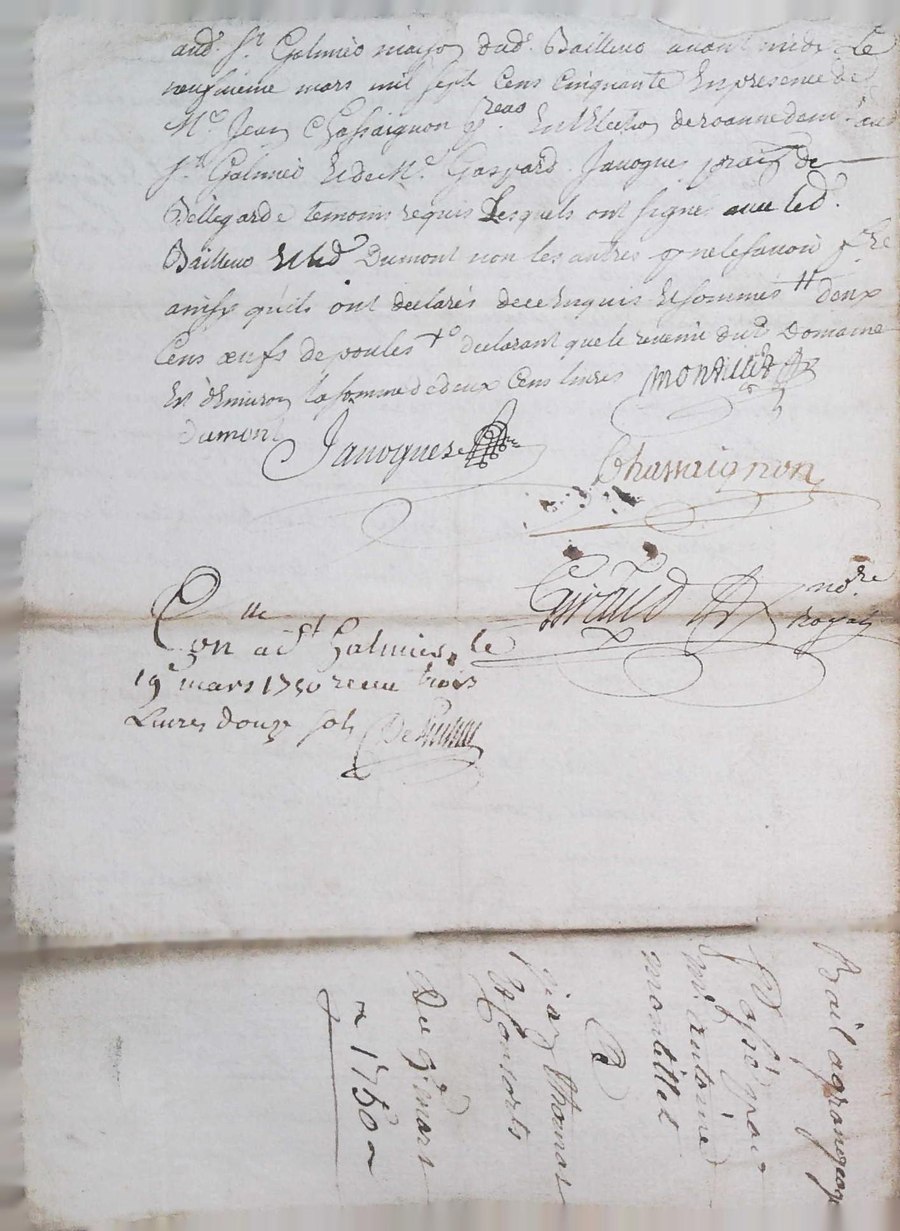 aud. St. Galmié maison dud. Bailleur avant midy le
neufvieme mars mil sept cens cinquante En presence de
Me. Jean Chassaignon En L'Election de roanne dem. aud.
St. Galmié Et de Me. Gaspard Janoques prat. de
Bellegarde temoins requis Lesquels ont signé avec led.
Bailleur Et led. Dumont non les autres p. ne le savoir faire
ainsy qu'ils ont declarés de ce Enquis Et sommés # deux
Cens œufs de poules +o declarant que le revenu dud. Domaine
Est d'Environ la somme de deux Cens livres Montillet
dumont Janoques
Chassaignon
Giraud nore.
royal
Conlle a St Galmier, le
19e mars 1750 receu trois
Livres douze sols
Bail a grangeage
passé par
mr. antoine
montillet
A
jean Thomas
& Consorts
Du 9e. mars
1750